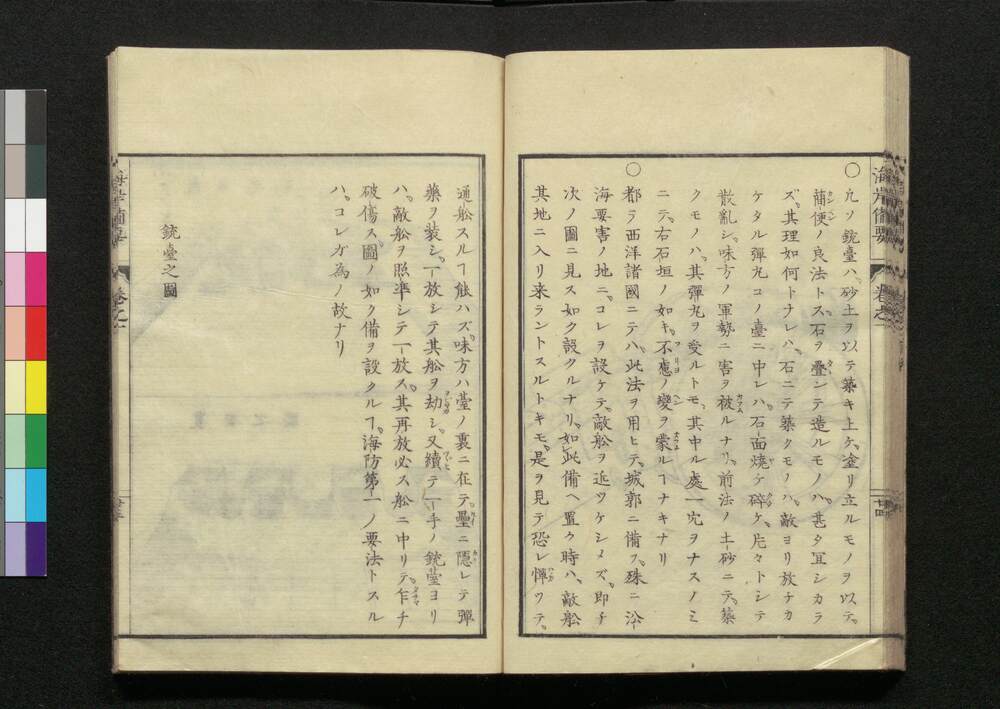 海岸備要 巻之一
〇凡ソ銃臺ハ、砂土ヲ以テ築キ上ケ、塗リ立ルモノヲ以テ、
簡便ノ良法トス、石ヲ疊ンテ造ルモノハ、甚タ冝シカラ
ズ、其理如何トナレハ、石ニテ築クモノハ、敵ヨリ放チカ
ケタル彈丸コノ臺ニ中レハ、石面焼ケ碎ケ、片々トシテ
散亂シ、味方ノ軍勢ニ害ヲ被ルナリ、前法ノ土砂ニテ、築
クモノハ、其彈丸ヲ受ルトモ、其中ル處一穴ヲナスノミ
ニテ、右石垣ノ如キ、不應ノ變ヲ蒙ルヿナキナリ
〇都ラ西洋諸國ニテハ、此法ヲ用ヒテ、城郭ニ備フ、殊ニ沿
海要害ノ地ニ、コレヲ設ケテ、敵舩ヲ近ツケシメズ、即チ
次ノ圖ニ見ス如ク設クルナリ、如此備ヘ置ク時ハ、敵舩
其地ニ入リ来ラントスルトキモ、是ヲ見テ恐レ憚ツテ、
通舩スルヿ能ハズ、味方ハ臺ノ裏ニ在テ、壘ニ隠レテ彈
藥ヲ装シ、一放シテ其舩ヲ劫シ、又續テ一手ノ銃臺ヨリ
ハ、敵舩ヲ照準シテ一放ス、其再放必ス舩ニ中リテ、乍チ
破傷ス、圖ノ如ク備ヲ設クルヿ、海防第一ノ要法トスル
ハ、コレガ為ノ故ナリ
銃臺之圖